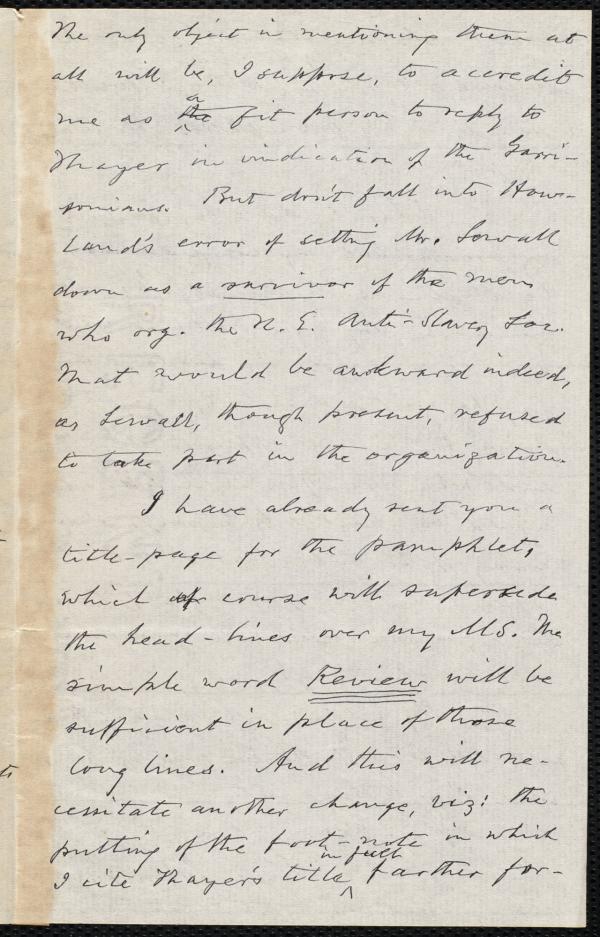 The only object in mentioning them at
all will be, I suppose, to accredit
me as the a fit person to reply to
Thayer in vindication of the Garri-
sonians. But don't fall into How-
land's error of setting Mr. Sewall
down as a survivor of the men
who org. the N. E. Anti-Slavery Soc.
That would be awkward indeed,
as Sewall, though present, refused
to take part in the organization.
I have already sent you a
title-page for the pamphlet,
which of course will supersede
the head-lines over my MS. The
simple word Review will be
sufficient in place of those
long lines. And this will ne-
cessitate another change, viz: the
putting of the foot-note in which
I cite Thayer's title in full farther for-